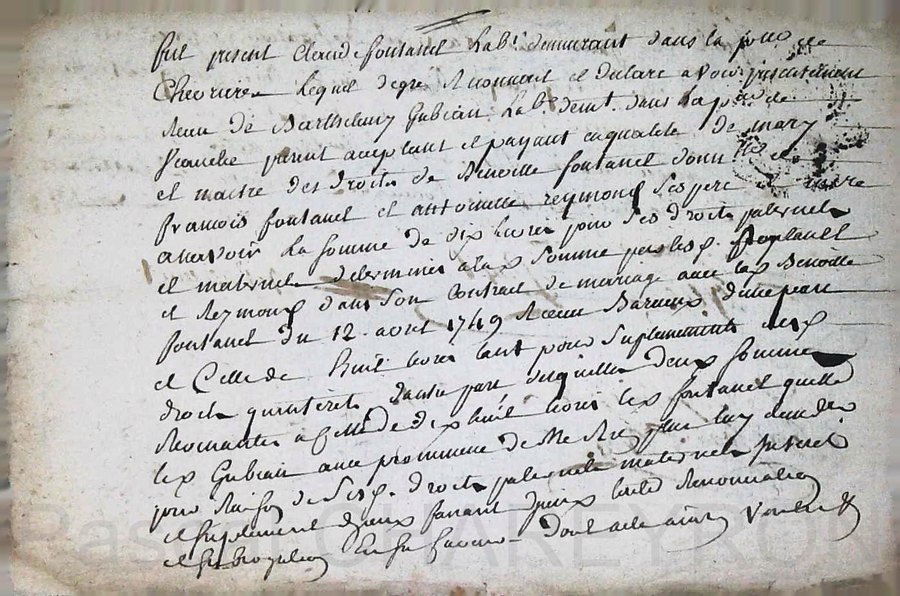 fut present Claude fontanel hab.t demeurant dans la p
Chevrieres lequel degre Reconnait et declare avoir presentement
Receu de Barthelemy Gubian hab.t demt. dans la p de
present aceptant et payant en qualite de mary
et maitre des droits de Benoitte fontanel donnée
francois fontanel et antoinette reymond ses pere et mere
a scavoir la somme de dix livres pour ses droits paternels
et maternels determinés a la d somme par lesd. fontanel
et Reymond dans son Contrat de mariage avec lad Benoitte
fontanel du 12. avril 1749 Receu Barieux d'une part
et Celle de huit livres tant pour suplements desd
droits qu'interets d'autre part desquelles deux sommes
Revenantes a celle de dix huit livres led fontanel quitte
led Gubian avec promesse de Ne Rien luy demander
pour Raison de sesd. droits paternels maternels interets
et suplement d'iceux faisant d'yceux toute Renonciation
et subrogation en sa faveur dont acte ainsi Voulu
Pascal CHAREYRON